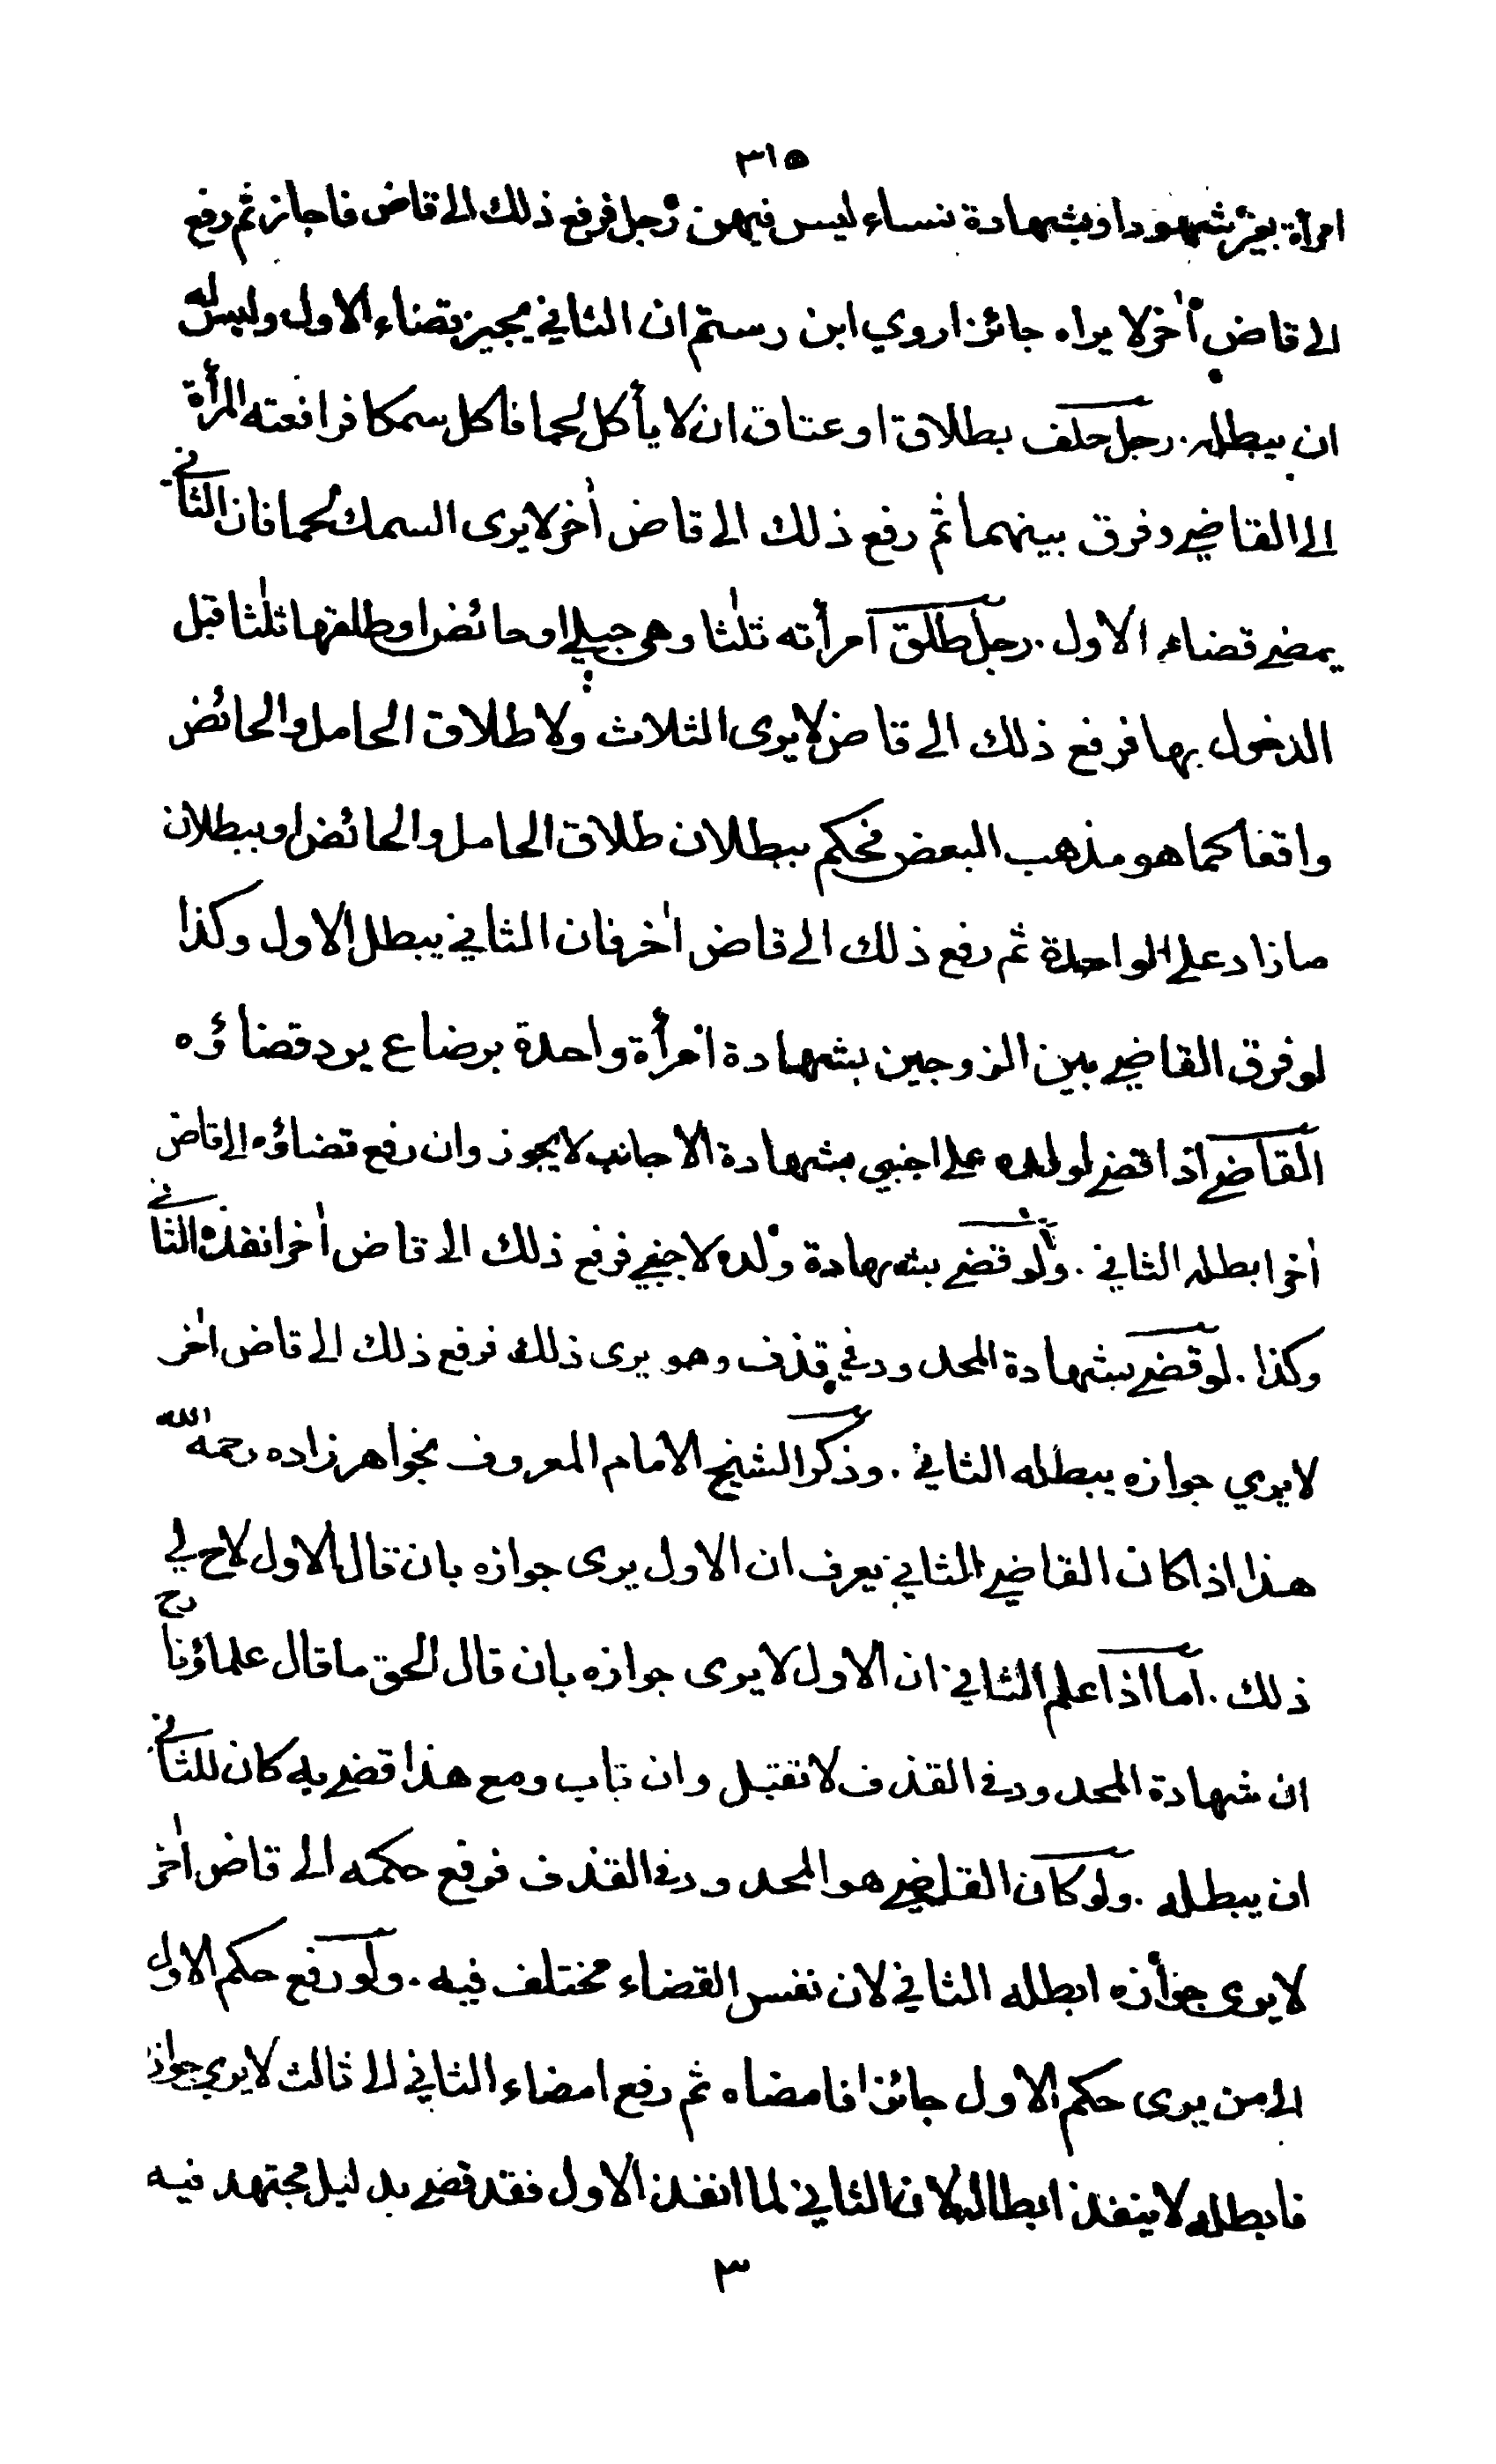 ٣١٥
امرأة بغير شهود او بشهادة نساء ليس فيهن رجل فرفع ذلك الى قاض فاجاز ثم رفع
الى قاض اٰخر لا يراه جائزا روي ابن رستم ان الثاني يجيز بقضاء الاول وليس له
ان يبطله . رجل حلف بطلاق او عتاق ان لا يأكل لحما فاكل سمكا فرافعته المرأة
الى القاضي وفرق بينهما ثم رفع ذلك الى قاض اٰخر لا يرى السمك لحما فان الثاني
يمضي قضاء الاول . رجل طلق امرأته ثلٰثا وهى حبلى او حائض او طلقها ثلٰثا قبل
الدخول بها فرفع ذلك الى قاض لا يرى الثلاث ولا طلاق الحامل والحائض
واقعا كما هو مذهب البعض فحكم ببطلان طلاق الحامل والحائض او ببطلان
مازاد على الواحدة ثم رفع ذلك الى قاض اٰخر فان الثاني يبطل الاول وكذا
لو فرق القاضي بين الزوجين بشهادة امرأة واحدة برضاع يرد قضاؤه
القاضي اذا قضى لولده على اجنبي بشهادة الاجانب لا يجوز وان رفع قضاؤه الى قاض
اٰخر ابطله الثاني . ولو قضى بشهادة ولده لاجنبي فرفع ذلك الى قاض اٰخر انفذه الثاني
وكذا . لو قضى بشهادة المحدود في قذف وهو يرى ذلك فرفع ذلك الى قاض اٰخر
لا يري جوازه يبطله الثاني . وذكر الشيخ الامام المعروف بخواهر زاده رحمه الله
هذا اذا كان القاضي الثاني يعرف ان الاول يرى جوازه بان قال الاول لاح لي
ذلك . اما اذا علم الثاني ان الاول لا يرى جوازه بان قال الحق ما قال علماؤنا رح
ان شهادة المحدود في القذف لا تقبل وان تاب ومع هذا قضى به كان للثاني
ان يبطله . ولو كان القاضي هو المحدود في القذف فرفع حكمه الى قاض اٰخر
لا يرى جوازه ابطله الثاني لان نفس القضاء مختلف فيه . ولو رفع حكم الاول
الى من يرى حكم الاول جائزا فامضاه ثم رفع امضاء الثاني الى ثالث لا يري جوازه
فابطله لا ينفذ ابطاله لان الثاني لما انفذ الاول فقد قضى بدليل مجتهد فيه
٣